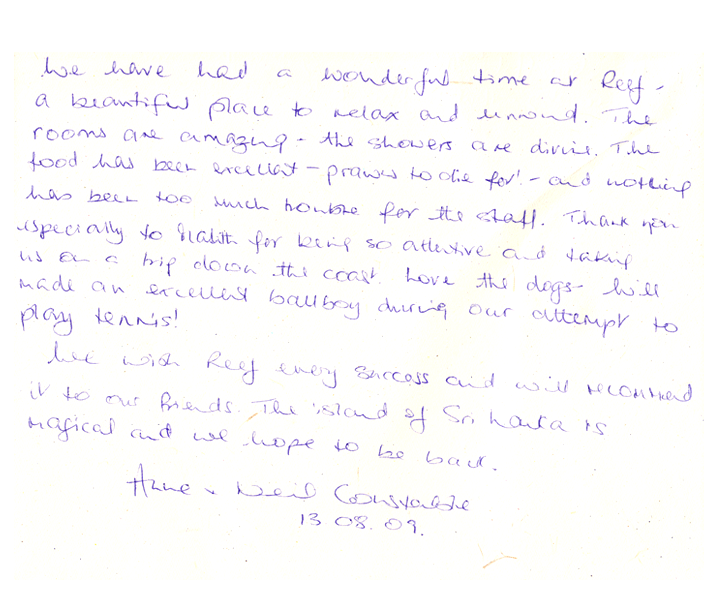 We have had a wonderful time at Reef -
a beautiful place to relax and unwind. The
rooms are amazing - the showers are divine. The
food has been excellent - prawns to die for! - and nothing
has been too much trouble for the staff. Thank you
especially to for being so attentive and taking
us on a trip down the coast. Love the dogs -
made an excellent ballboy during our attempt to
play tennis!
We wish Reef every success and will recommend
it to our friends. The island of Sri Lanka is
magical and we hope to be back.
Anne + Neil Constable
13.08.09.